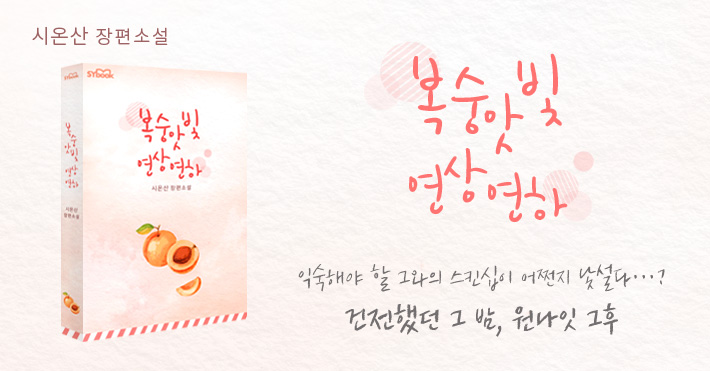 시온산 장편소설
SYbook
복숭앗빛
연상연하
시온산
장편소설
SYbook
복숭앗빛
연상연하
시온산 장편소설
복숭앗빛
연상연하
익숙해야 할 그와의 스킨십이 어쩐지 낯설다…?
건전했던 그 밤, 원나잇 그후